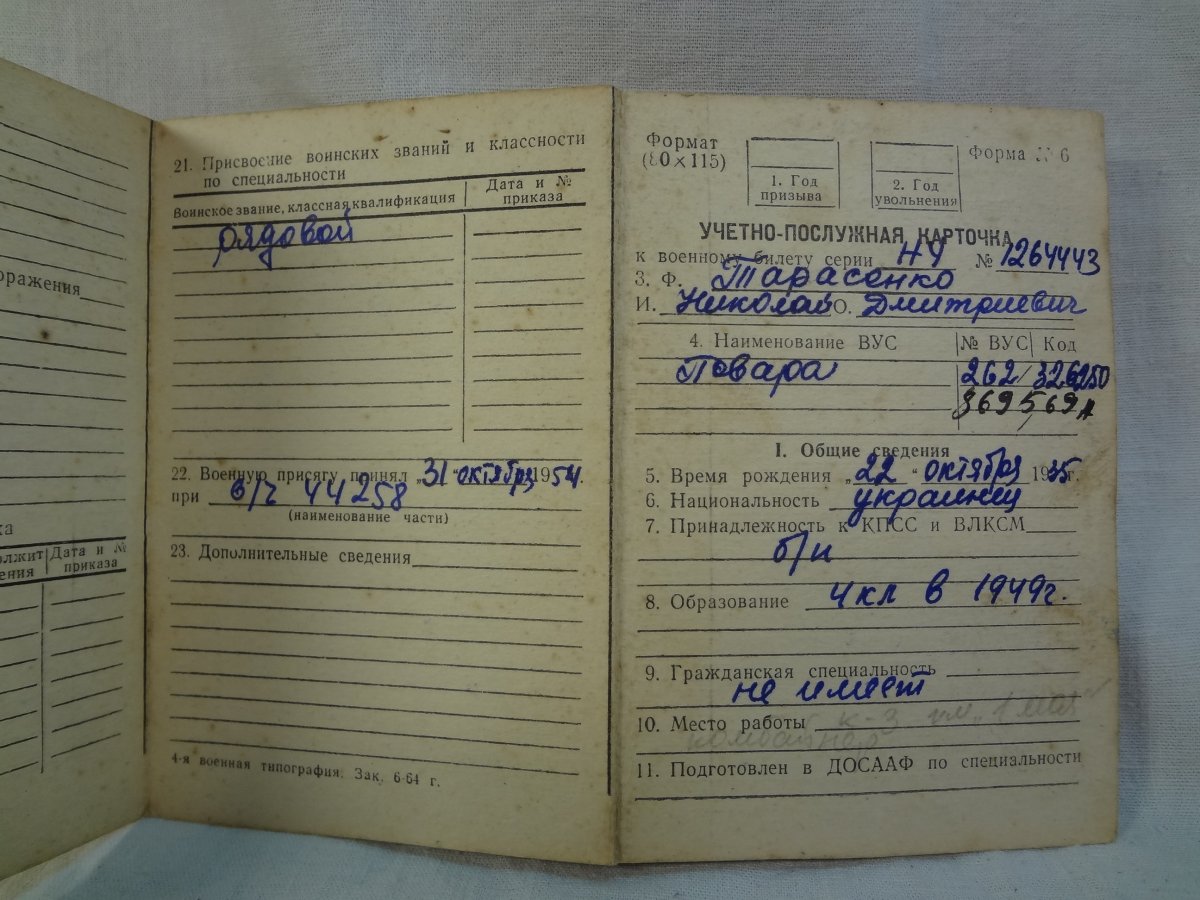 оражения
ка
олжит Дата и №
ения приказа
21. Присвоение воинских званий и классности
по специальности
Воинское звание, классная квалификация Дата и № приказа
рядовой
22. Военную присягу принял „31“ октября 1954г.
при в/ч 44258
(наименование части)
23. Дополнительные сведения
4-я военная типография. Зак. 6-64 г.
Формат
(80×115)
1. Год
призыва
2. Год
увольнения
Форма № 6
УЧЕТНО-ПОСЛУЖНАЯ КАРТОЧКА
к военному билету серии НЧ № 1264443
3. Ф. Тарасенко
И. Николай О. Дмитриевич
4. Наименование ВУС № ВУС Код
Повара 262
869
I. Общие сведения
5. Время рождения „22“ октября 1935г.
6. Национальность украинец
7. Принадлежность к КПСС и ВЛКСМ
б/п
8. Образование 4 кл в 1949г.
9. Гражданская специальность
не имеет
10. Место работы к-з им. 1 мая
11. Подготовлен в ДОСААФ по специальности